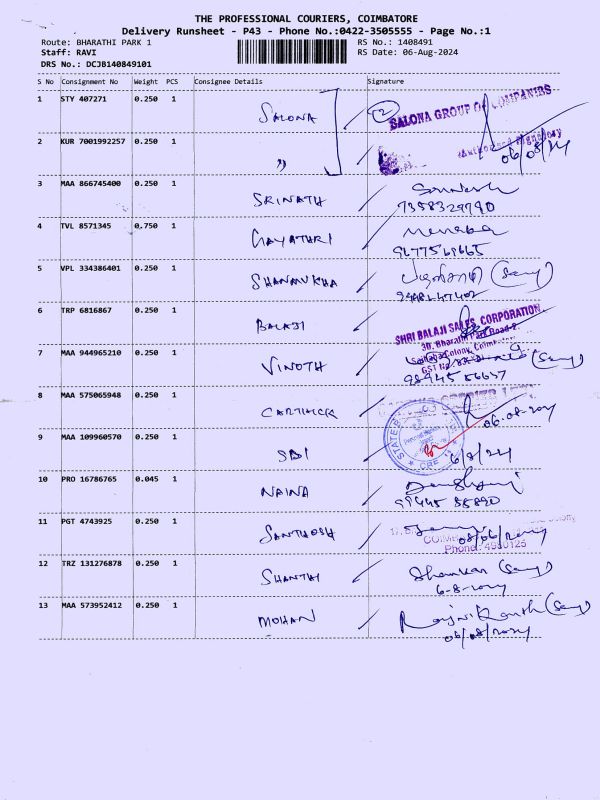 THE PROFESSIONAL COURIERS, COIMBATORE
Delivery Runsheet - P43 - Phone No.:0422-3505555 - Page No.:1
Route: BHARATHI PARK 1 RS No.: 1408491
Staff: RAVI RS Date: 06-Aug-2024
DRS No.: DCJB140849101
S No Consignment No Weight PCS Consignee Details Signature
1 STY 407271 0.250 1 SALONA 2 SALONA GROUP OF COMPANIES
2 KUR 7001992257 0.250 1 " Authorised Signatory 06/08/24
3 MAA 866745400 0.250 1 SRINATH
7358329990
4 TVL 8571345 0,750 1 GAYATHRI
5 VPL 334386401 0.250 1 SHANMUKHA
6 TRP 6816867 0.250 1 BALAJI SHRI BALAJI SALES CORPORATION
30, Bharathi Park Road-2
7 MAA 944965210 0.250 1 VINOTH
8 MAA 575065948 0.250 1 CARTHICK 06.08.2024
9 MAA 109960570 0.250 1 SBI STATE 6/8/24
10 PRO 16786765 0.045 1 NAINA
11 PGT 4743925 0.250 1 SANTHOSH
Phone: 4980125
12 TRZ 131276878 0.250 1 SHANTHI Shankar
6-8-2024
13 MAA 573952412 0.250 1 MOHAN
06/08/2024